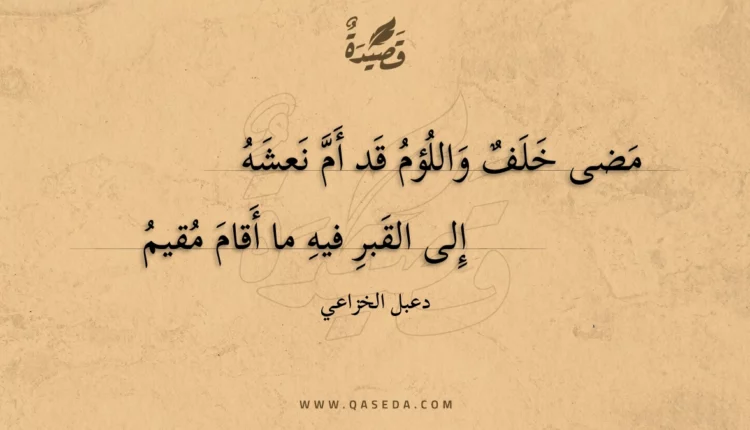 قَصِيدَةٌ
مَضى خَلَفٌ وَاللُؤمُ قَد أَمَّ نَعشَهُ
إِلى القَبرِ فيهِ ما أَقامَ مُقيمُ
دعبل الخزاعي
WWW.QASEDA.COM